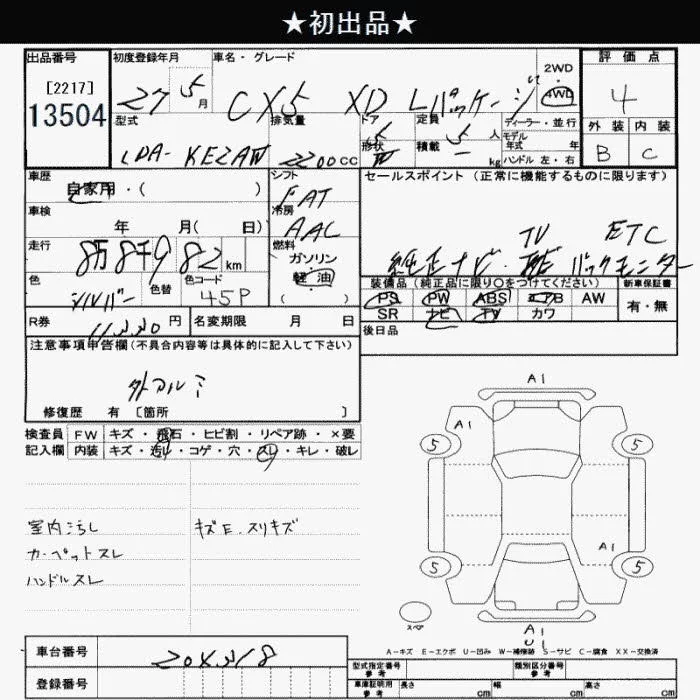 ★初出品★
出品番号 初度登録年月 車名・グレード 2WD 評価点
[2217] 27 5月 CX5 XD Lパッケージ 4WD 4
13504 型式 排気量 ドア 定員 ディーラー・並行 外装 内装
5 5人 モデル年式 年
LDA- 2200CC 形状 積載 kg ハンドル 左・右 B C
車歴 シフト セールスポイント (正常に機能するものに限ります)
自家用・( ) FAT
車検 冷房
年 月( 日) AAC TV ETC
走行 燃料 純正ナビ・ バックモニター
8万8千982km ガソリン
色 色替 色コード 軽油 装備品 (純正品に限り〇をつけてください) 新車保証書
シルバー 45P ( ) PS PW ABS エアB AW 有・無
R券 円 名変期限 月 日 SR ナビ TV カワ
後日品
注意事項申告欄(不具合内容等は具体的に記入して下さい)
外アルミ
修復歴 有 [箇所 ]
A1
検査員 FW キズ・飛石・ヒビ割・リペア跡・×要
記入欄 内装 キズ・汚れ・コゲ・穴・スレ・キレ・破レ
A1
5 5
室内こうし キズE.スリキズ
カーペットスレ
A1
ハンドルスレ
5 5
スペア
A1
U1
A-キズ E-エクボ U-凹み W-補修跡 S-サビ C-腐食 XX-交換済
車台番号
登録番号
型式指定番号 参考 類別区分番号 参考
車庫証明用 参考 長さ cm 幅 cm 高さ cm